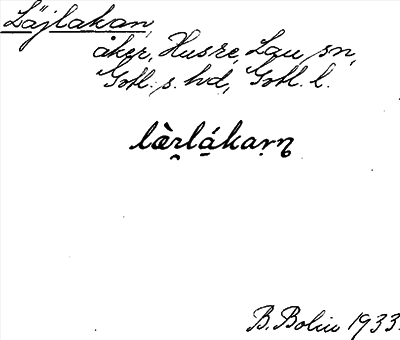 Läjlakan,
åker, Husre, Lau sn,
Gotl. s. hd, Gotl. l.
læ̀rlákaṇ
B. Bolin 1933.